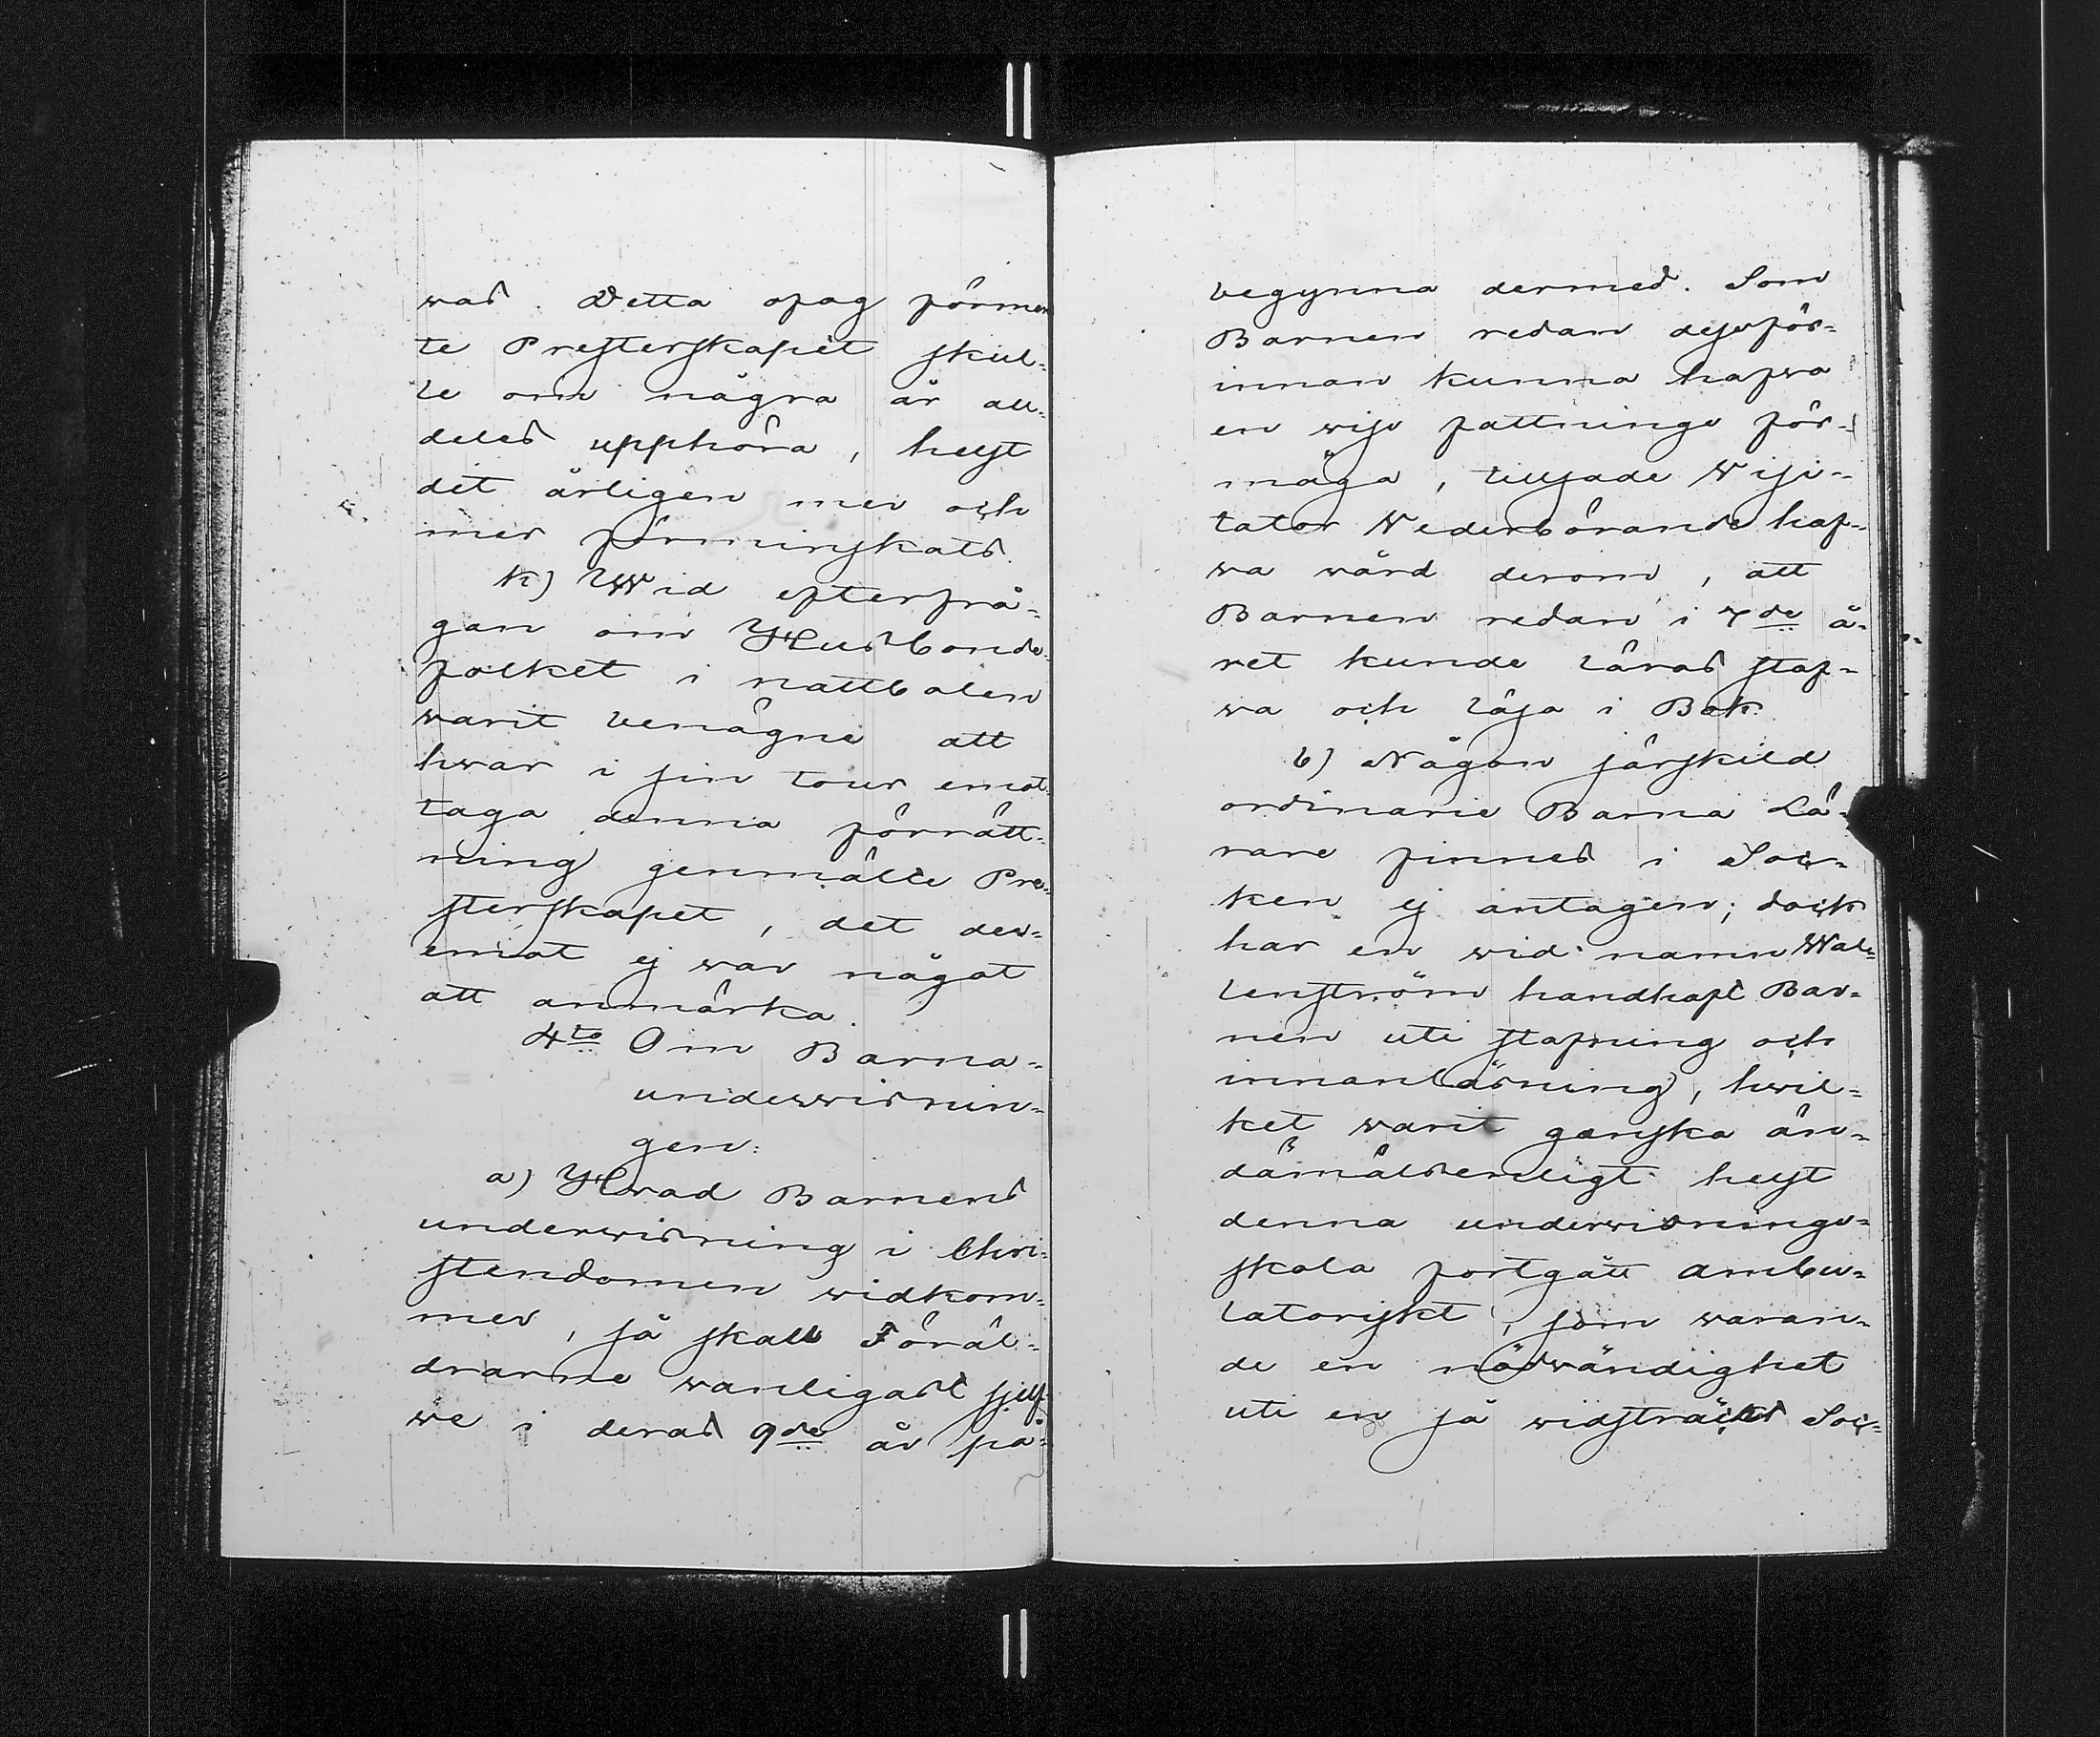 was. Detta ofog förmen
te Presterskapet skul-
le om några år all-
deles upphöra, helst
det årligen mer och
mer förminskats.
k) Wid efterfrå-
gan om Husbonde-
folket i nattbolen
warit benägne att
hwar i sin tour emot-
taga denna förrätt-
ning genmälte Pre-
sterskapet, det der-
emot ej war något
att anmärka.
4to Om Barna-
underwisnin-
gen:
a) Hwad Barnens
underwisning i Chri-
stendomen widkom-
mer, så skall Föräl-
drarne wanligast sjelf-
we i deras 9de år på-
begynna dermed. Som
Barnen redan dessför-
innan kunna hafwa
en wiss fattnings för-
måga, tillsade Visi-
tator Wederbörande haf-
wa wård derom, att
Barnen redan i 7de å-
ret kunde läras staf-
wa och läsa i Bok.
b) Någon särskild
ordinarie Barna Lä-
rare finnes i Soc-
ken ej antagen; dock
har en wid namn Wal-
lenström handhaft Bar-
nen uti stafning och
innanläsning, hwil-
ket warit ganska än-
damålsenligt helst
denna underwisnings-
skola fortgått ambu-
latoriskt, som waran-
de en nödwändighet
uti en så widsträckt Soc-